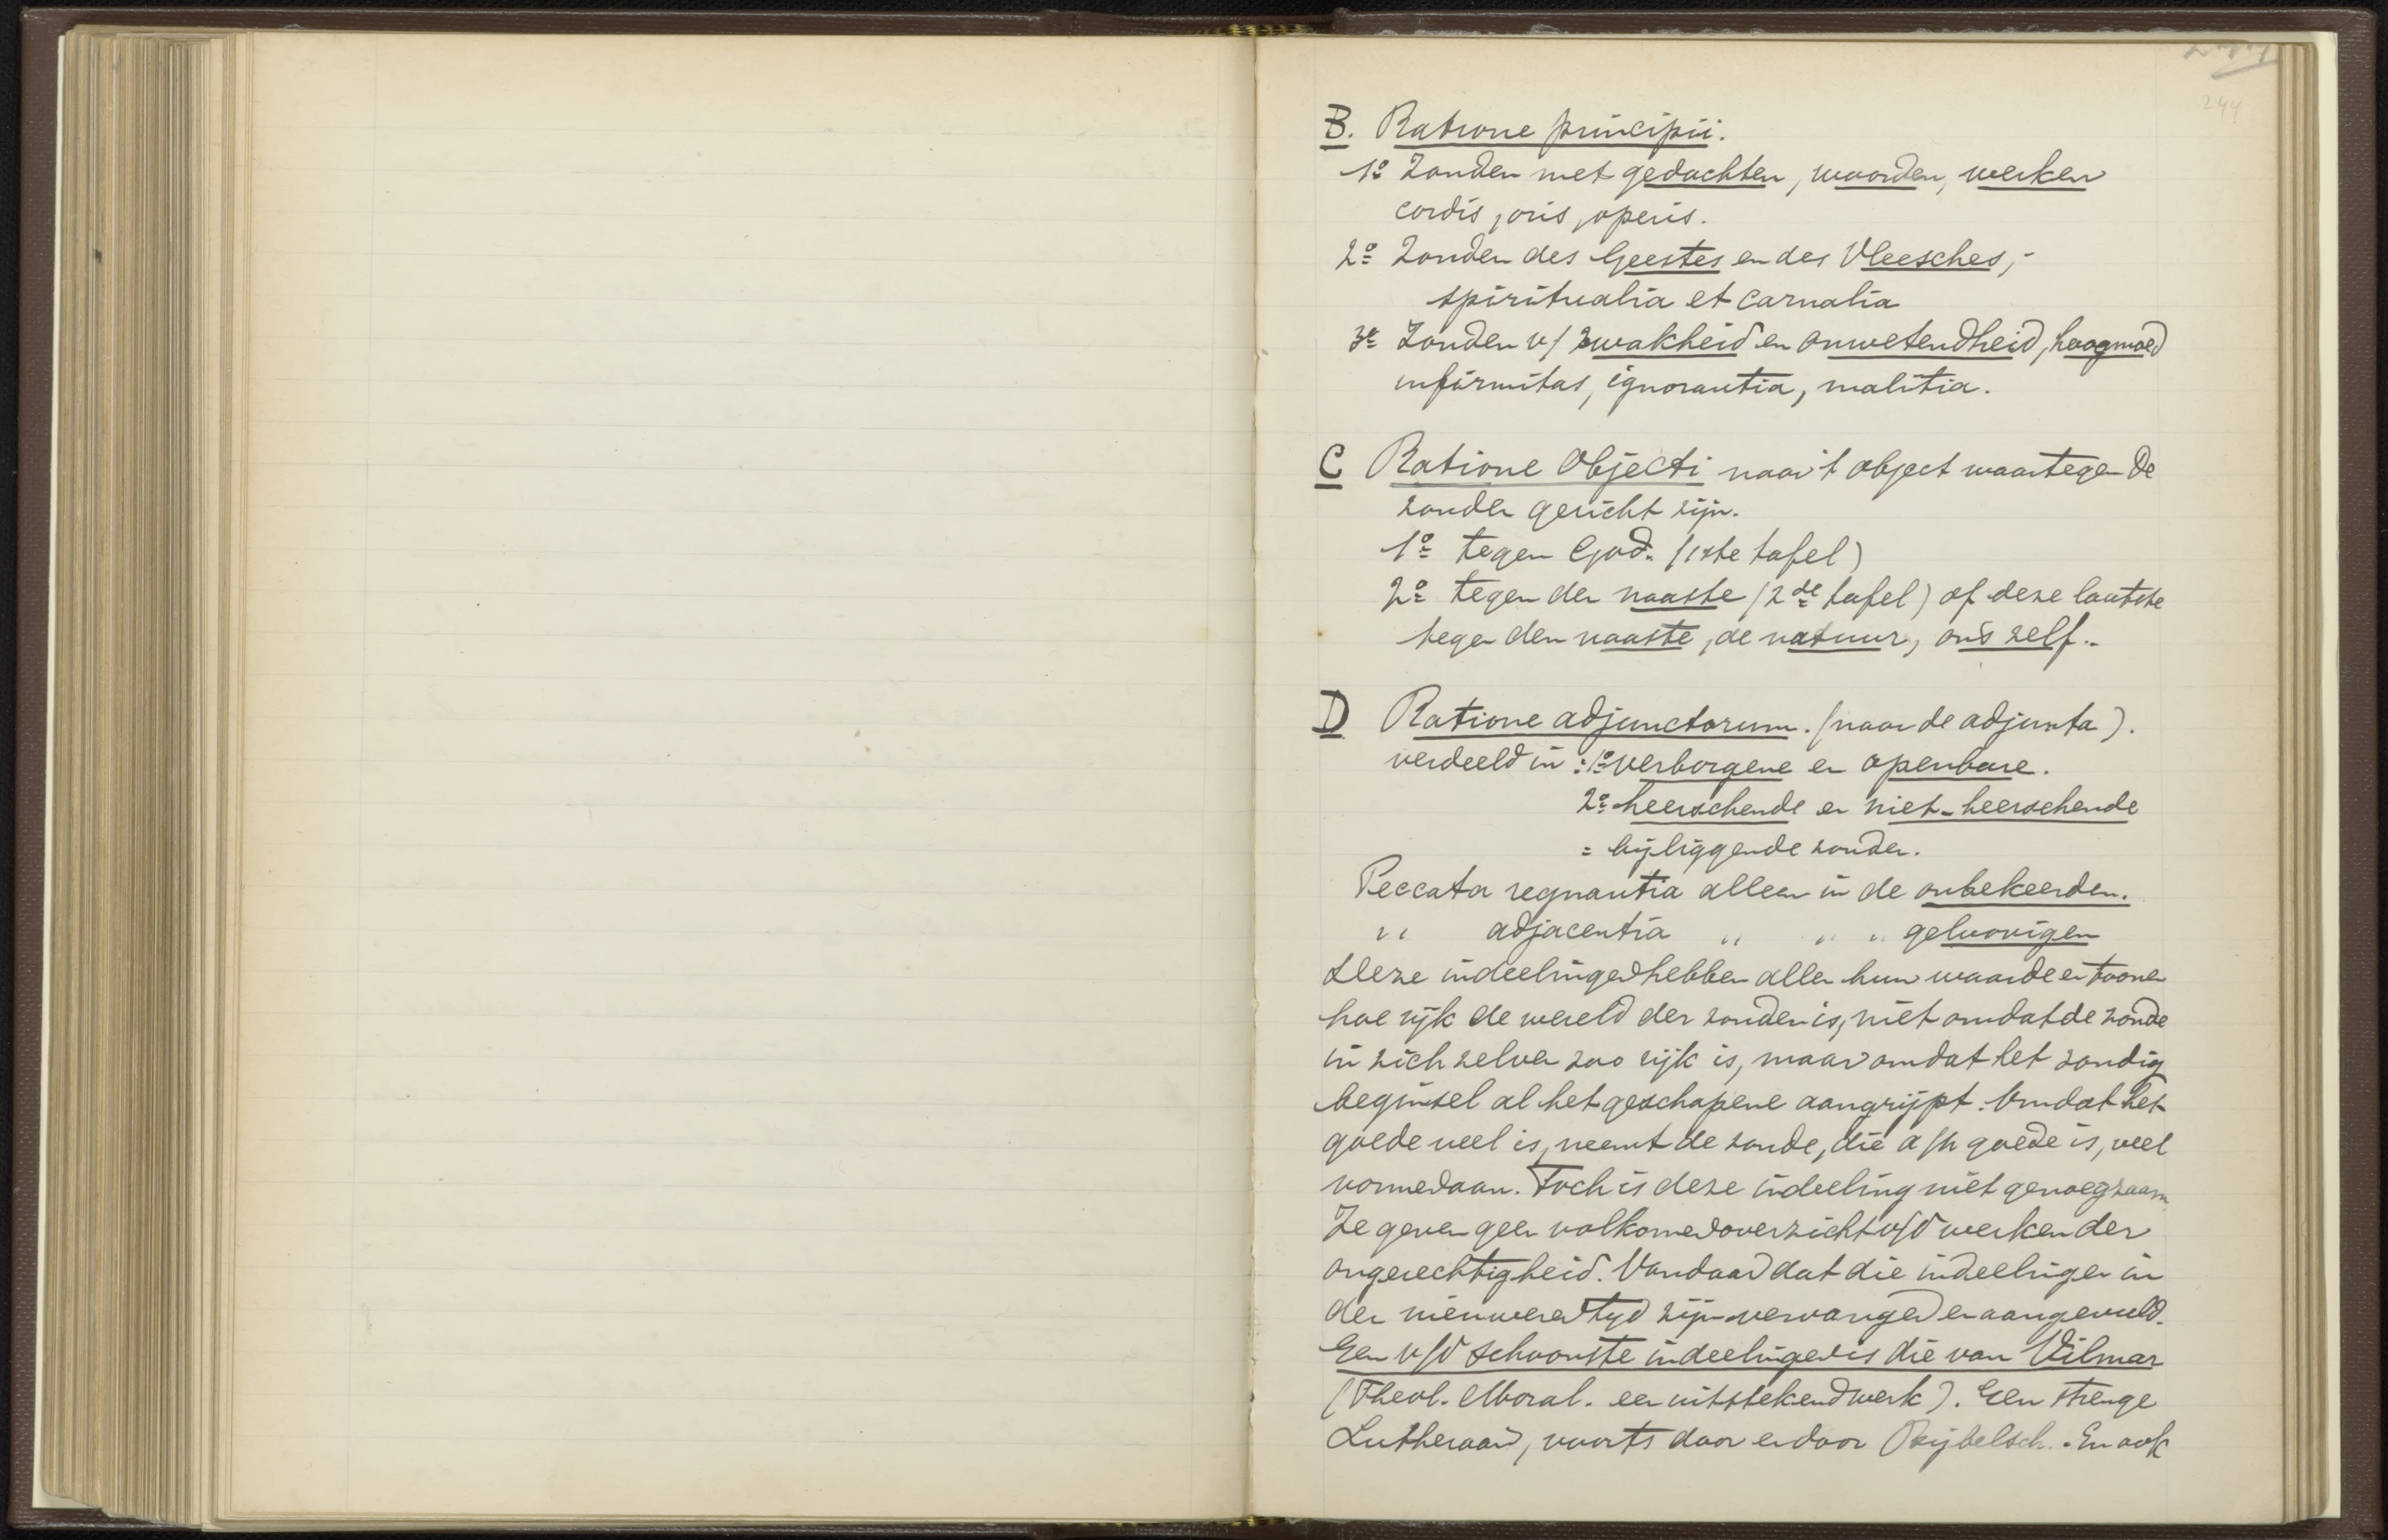 244
B. Ratione principii.
1o Zonden met gedachten, woorden, werken
cordis, oris, operis.
2o Zonden des Geestes en des Vleesches,-
spiritualia et carnalia
3o Zonden v/ zwakheid en onwetendheid, hoogmoed
infirmitas, ignorantia, malitia.
C Ratione Objecti naar 't object waartegen de
zonden gericht zijn.
1o tegen God. (1ste tafel)
2o tegen den naaste (2de tafel) of deze laatste
tegen den naaste, de natuur, ons zelf..
D Ratione adjunctorum. (naar de adjunta).
verdeeld in: 1o verborgene en openbare.
2o heerschende en niet-heerschende
= bijliggende zonden.
Peccata regnantia alleen in de onbekeerden.
" adjacentia " " " geloovigen
Deze indeelingen hebben allen hun waarde en toonen
hoe rijk de wereld der zonden is, niet omdat de zonde
in zich zelven zoo rijk is, maar omdat het zondig
beginsel al het geschapene aangrijpt. Omdat het
goede veel is, neemt de zonde, die a/h goede is, veel
vormen aan. Toch is deze indeeling niet genoegzaam
Ze geven geen volkomen overzicht v/d werken der
ongerechtigheid. Vandaar dat die indeelingen in
den nieuweren tyd zijn vervangen en aangevuld.
Een v/d schoonste indeelingen is die van Vilmar
(Theol. Moral. een uitstekend werk). Een strenge
Lutheraan, voorts door en door Bijbelsch. En ook